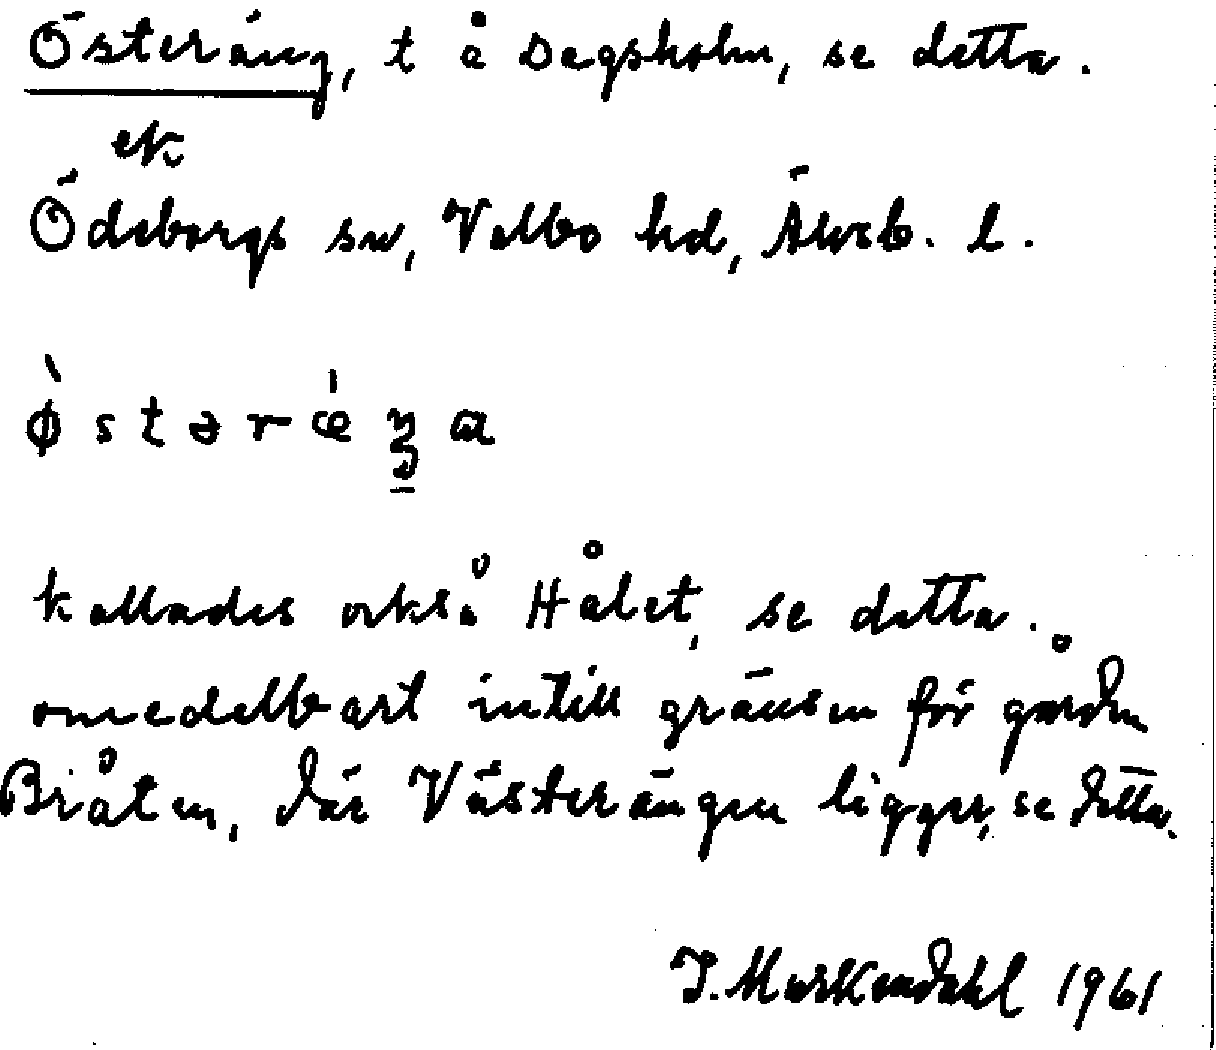 Österäng, t å Dagsholm, se detta.
ek
Ödeborgs sn, Valbo hd, Älvsb. l.
ø̀stərǽŋa
kallades också Hålet, se detta.
omedelbart intill gränsen för gården
Bråten, där Västerängen ligger, se detta.
J. Markendahl 1961